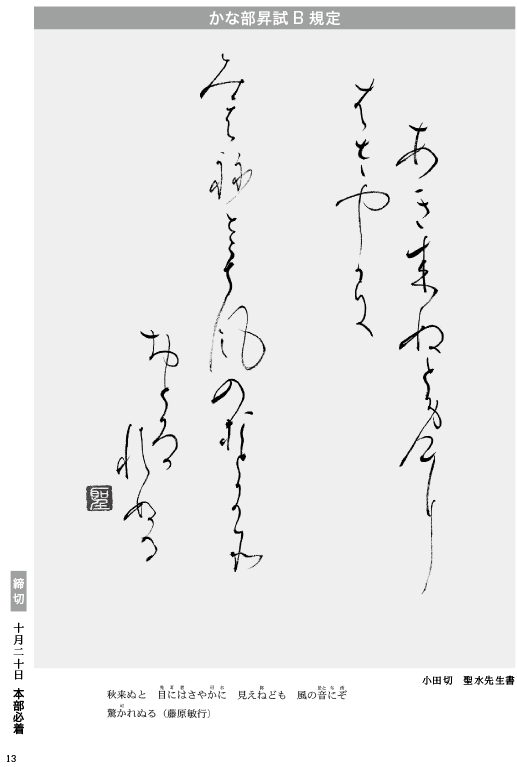 かな部昇試B規定
あき来ぬと免尓
者さや可尓
みえ祢とも風の
おとろ可
れぬる
聖
小田切　聖水先生書
秋来ぬと　目にはさやかに　見えねども　風の音にぞ
驚かれぬる（藤原敏行）
締切　十月二十日　本部必着
13